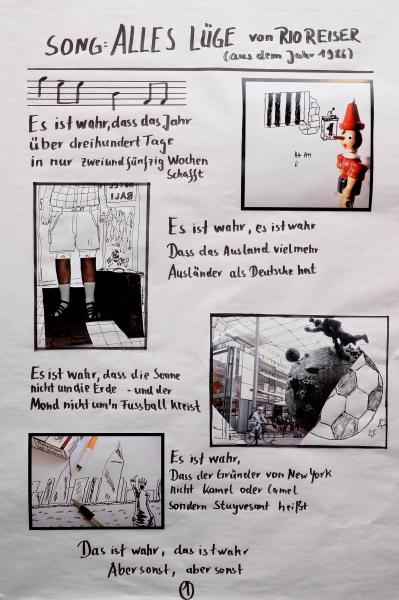 SONG: ALLES LÜGE von RIO REISER
(aus dem Jahr 1986)
Es ist wahr, dass das Jahr
über dreihundert Tage
in nur zweiundfünfzig Wochen
schafft
1
HOTEL
BALI
Es ist wahr, es ist wahr
Dass das Ausland vielmehr
Ausländer als Deutsche hat
Es ist wahr, dass die Sonne
nicht um die Erde - und der
Mond nicht um'n Fussball kreist
Es ist wahr,
Dass der Gründer von New York
nicht Kamel oder Camel
sondern Stuyvesant heißt
Das ist wahr, das ist wahr
Aber sonst, aber sonst
1